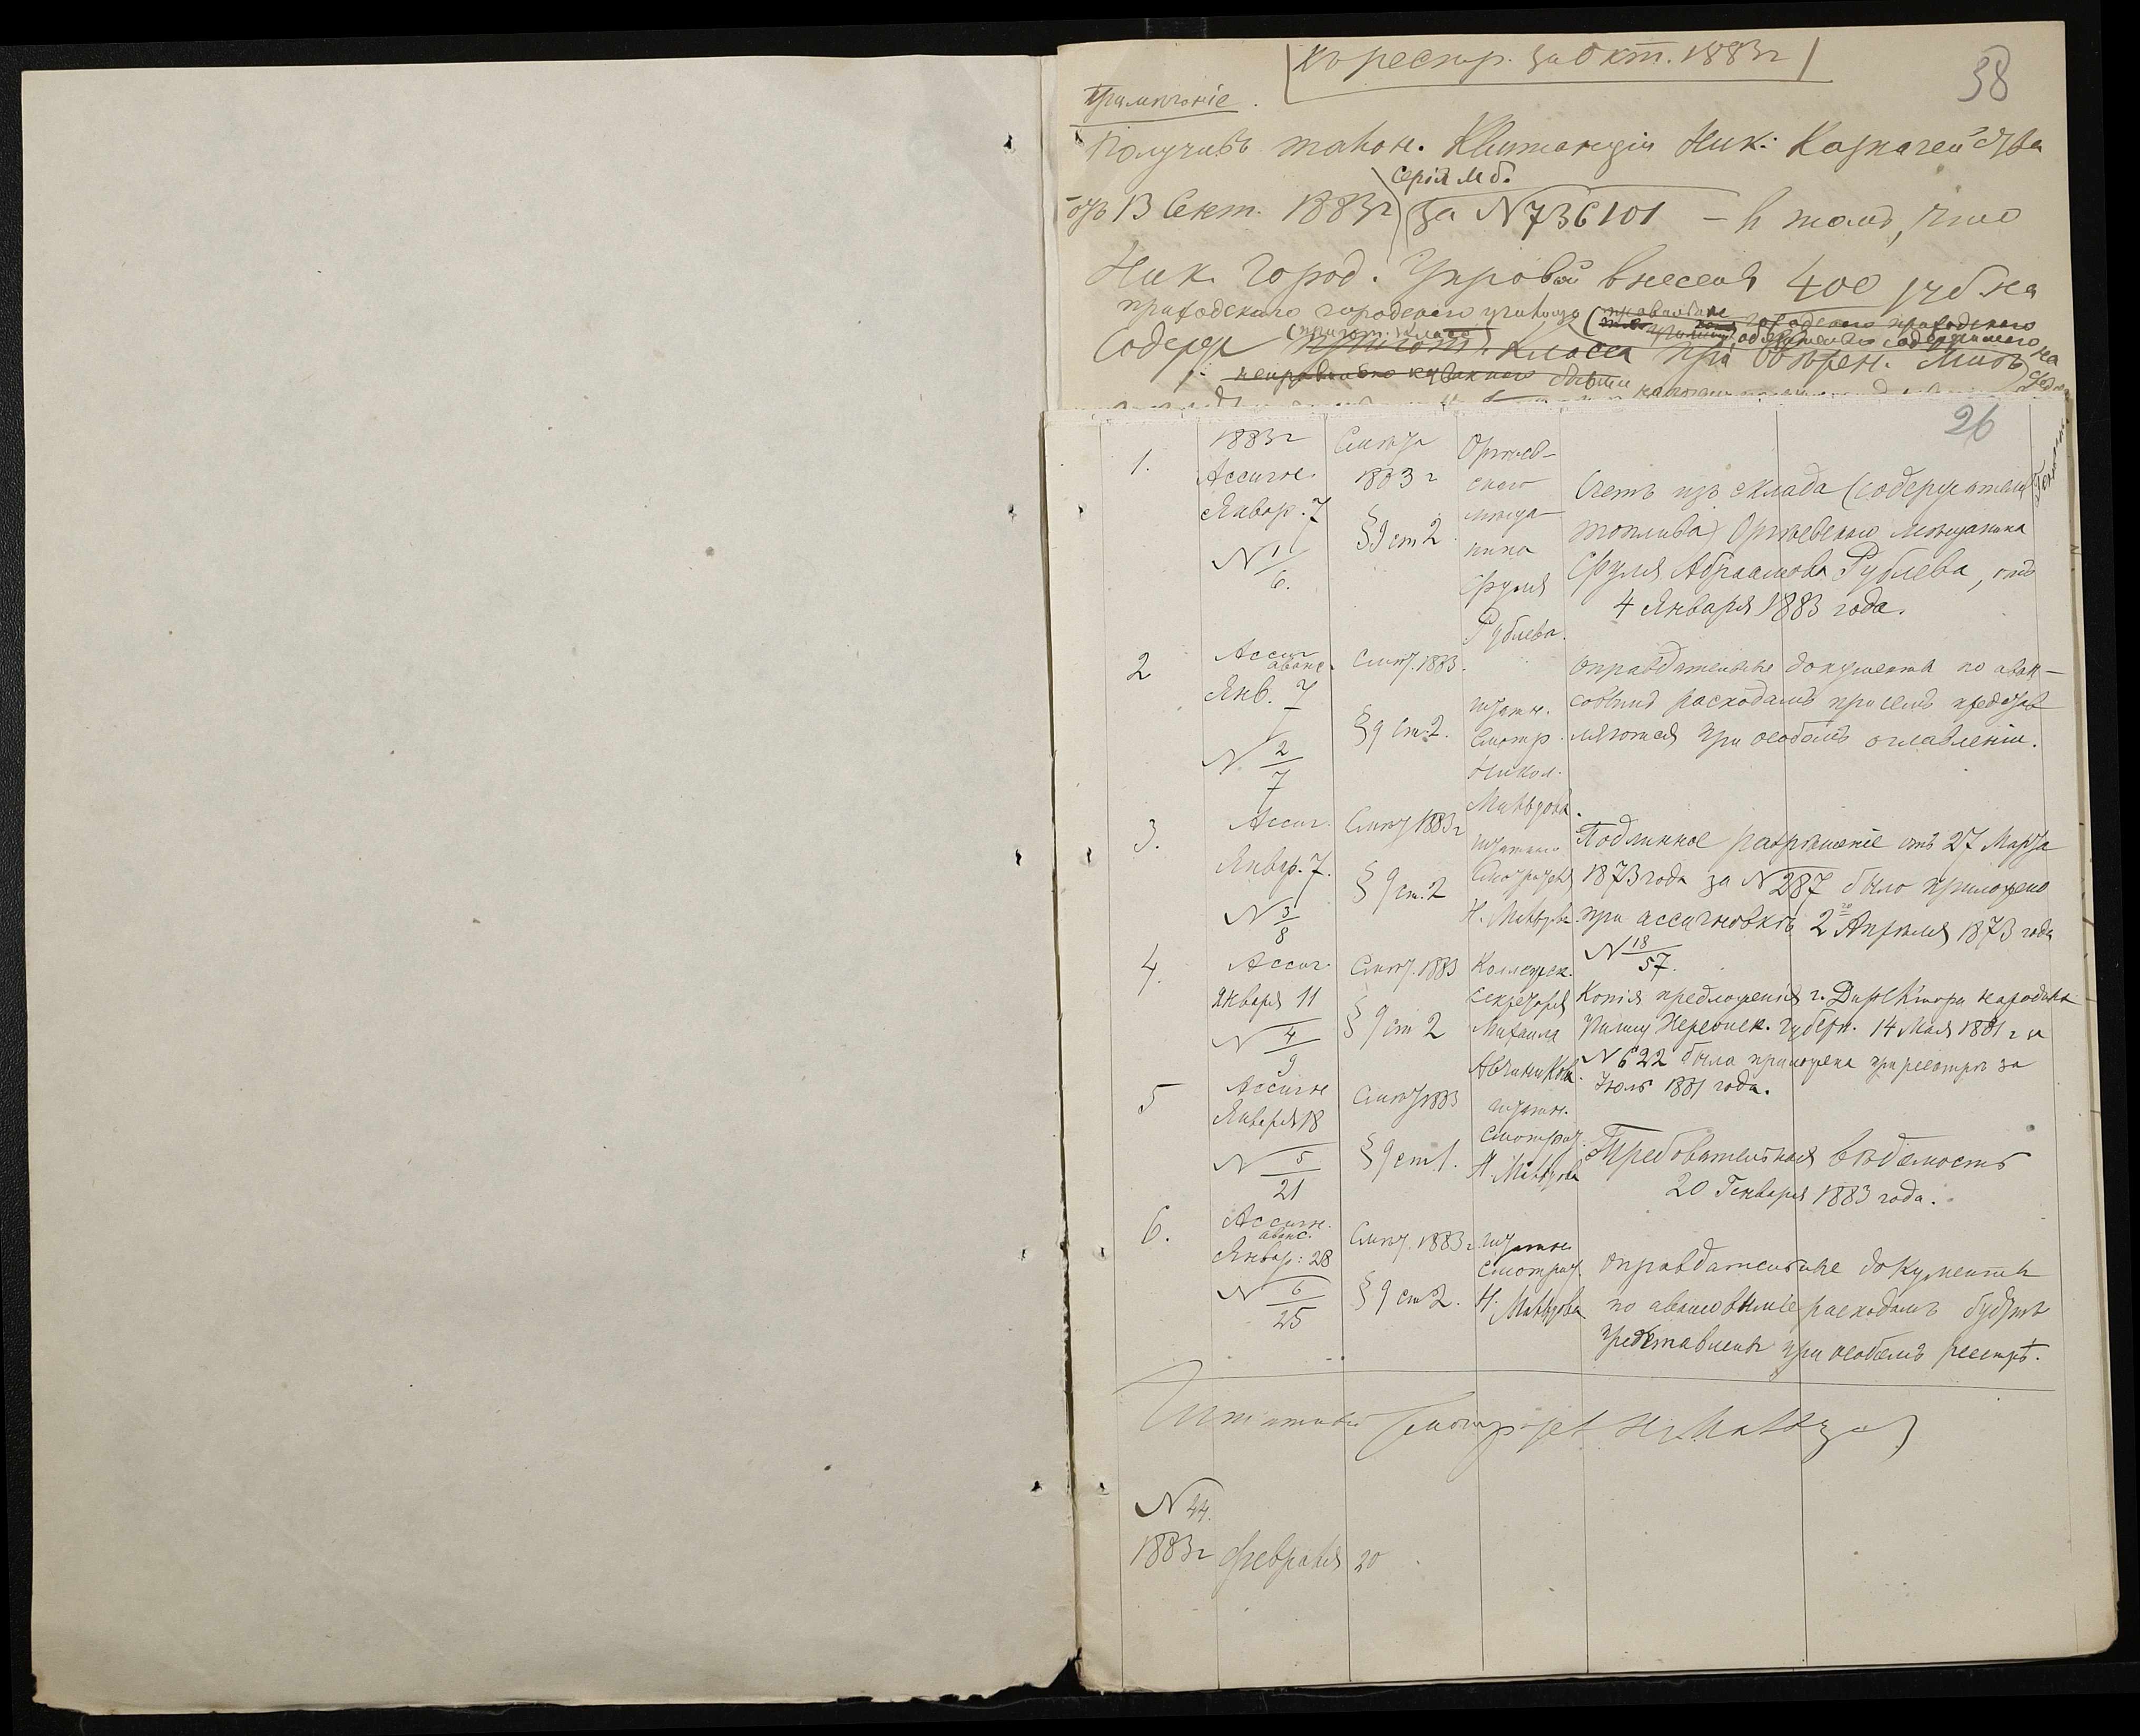 къ реестр. за Окт. 1883 г
38
Примѣчаніе.
Получивъ талон. Квитанціи Ник: Казначейства
Серія М б.
отъ 13 Сент. 1883 г за N 736101 – в томъ, что
Ник. Город. Управой внесены 400 руб на
приходскаго городского училища
содерж класса при
26
1.
1883 г
Ассигн.
Январ. 7
N 1/6.
Смѣта
1883 г
§ 9 ст 2
Оргѣев-
скаго
мѣща-
нина
Сруля
Рублева.
Счетъ изъ склада (содержателя
топлива) Оргѣевскаго мѣщанина
Сруля Абрамова Рублева, отъ
4 Января 1883 года.
2
Ассиг
аванс.
Янв. 7
N 2/7
Смѣт. 1883.
§ 9 ст. 2.
штатн.
Смотр.
Никол.
Оправдательные документы по аван-
совымъ расходамъ при семъ представ
ляются при особомъ оглавленіи.
3.
Ассиг.
Январ. 7.
N 3/8
Смѣт 1883 г
§ 9 ст. 2
штатнаго
Смотрителя
Н.
Подлинное разрѣшеніе отъ 27 Марта
1873 года за N 287 было приложено
при ассигновкѣ 2го Апрѣля 1873 года
N 18/57.
4.
Ассиг.
Января 11
N 4/9
Смѣт. 1883
§ 9 ст 2
Коллежск.
Секретаря
Михаила
Авчинникова.
Копія предложенія г. Директора народных
Училищ Херсонск. губерн. 14 Мая 1881 г за
N 622 была приложена при реестрѣ за
Іюль 1881 года.
5
Ассигн
Января 18
N 5/21
Смѣт 1883
§ 9 ст 1.
штатн.
Смотрит.
Н.
Требовательная вѣдомость
20 Генваря 1883 года.
6.
Ассигн.
аванс.
Январ: 28
N 6/25
Смѣт. 1883 г.
§ 9 ст 2.
штатн
Смотрит.
Н.
Оправдательные документы
по авансовымъ расходамъ будутъ
представлены при особомъ реестрѣ.
Штатный Смотритель Н.
N 44.
1883 г Февраля 20